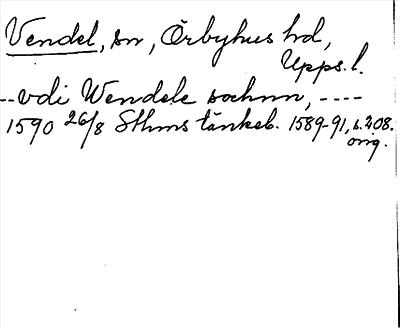 Vendel, sn, Örbyhus hd,
Upps. l.
--vdi Wendele sochnn, ----
1590 26/8 Sthms tänkeb. 1589-91, s. 208.
orig.